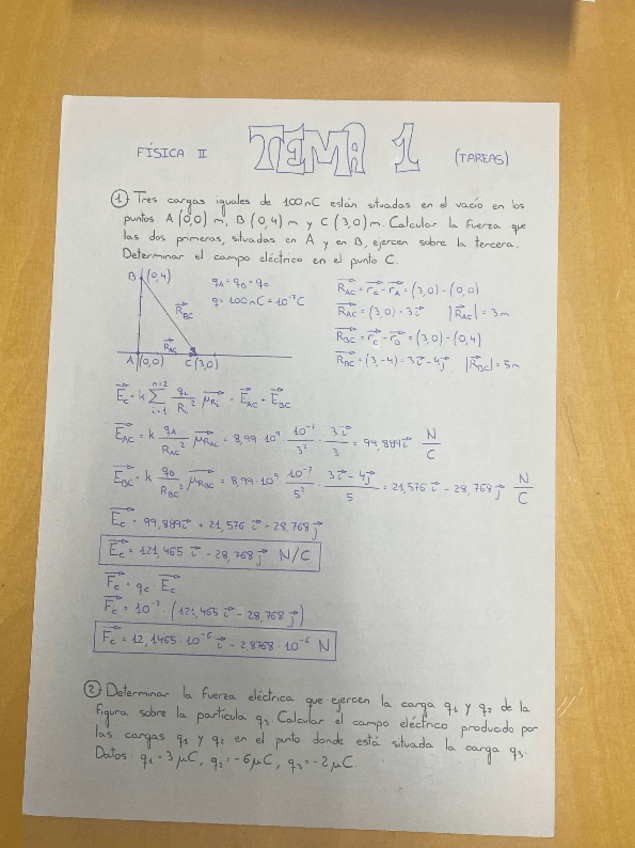 FÍSICA II TEMA 1 (TAREAS)
① Tres cargas iguales de 100nC están situadas en el vacío en los
puntos A (0,0) m, B (0,4) m y C (3,0) m. Calcular la fuerza que
las dos primeras, situadas en A y en B, ejercen sobre la tercera.
Determinar el campo eléctrico en el punto C.
B (0,4)
R⃗BC
R⃗AC
A (0,0) C (3,0)
qA = qB = qC
q = 100nC = 10⁻⁷C
R⃗AC = r⃗C - r⃗A = (3,0) - (0,0)
R⃗AC = (3,0) = 3i⃗ |R⃗AC| = 3m
R⃗BC = r⃗C - r⃗B = (3,0) - (0,4)
R⃗BC = (3,-4) = 3i⃗ - 4j⃗ |R⃗BC| = 5m
E⃗C = k ∑ⁿ⁼²ᵢ₌₁ qi/Ri² μ⃗Ri = E⃗AC + E⃗BC
E⃗AC = k qA/RAC² μ⃗RAC = 8,99·10⁹ · 10⁻⁷/3² · 3i⃗/3 = 99,889i⃗ N/C
E⃗BC = k qB/RBC² μ⃗RBC = 8,99·10⁹ · 10⁻⁷/5² · 3i⃗ - 4j⃗/5 = 21,576 i⃗ - 28,768 j⃗ N/C
E⃗C = 99,889i⃗ + 21,576 i⃗ - 28,768 j⃗
E⃗C = 121,465 i⃗ - 28,768 j⃗ N/C
F⃗C = qC · E⃗C
F⃗C = 10⁻⁷ · (121,465 i⃗ - 28,768 j⃗)
F⃗C = 12,1465·10⁻⁶ i⃗ - 2,8768·10⁻⁶ N
② Determinar la fuerza eléctrica que ejercen la carga q₁ y q₂ de la
figura sobre la partícula q₃. Calcular el campo eléctrico producido por
las cargas q₁ y q₂ en el punto donde está situada la carga q₃.
Datos: q₁ = 3 μC, q₂ = -6μC, q₃ = -2 μC.